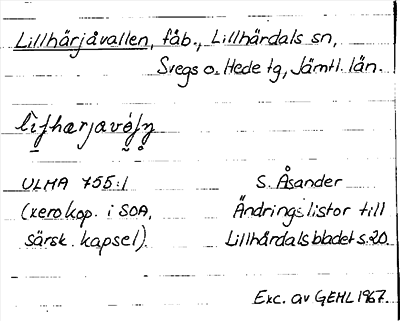 Lillhärjåvallen, fäb., Lillhärdals sn,
Svegs o. Hede tg, Jämtl. län.
ULMA 755:1 S. Åsander
(xerokop. i SOA, Ändringslistor till
särsk. kapsel). Lillhärdalsbladet s.20
Exc. av GEHL 1967.